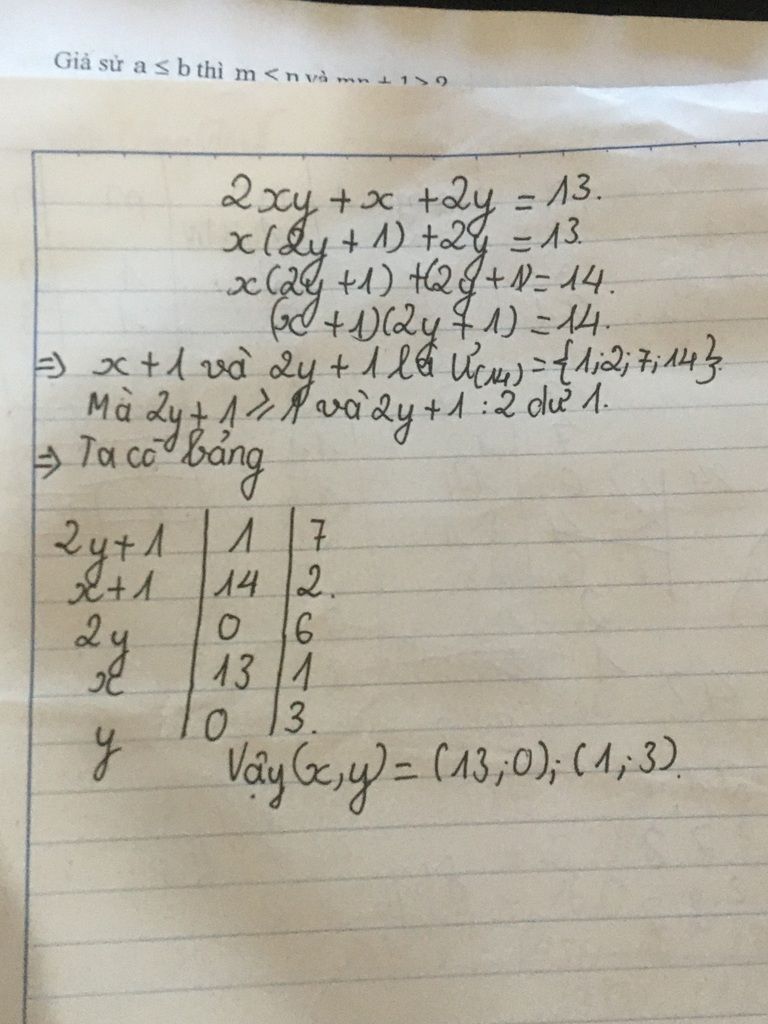 Giả sử a ≤ b thì m < n và mn + 1 > 2
2xy + x + 2y = 13.
x(2y + 1) + 2y = 13.
x(2y + 1) + (2y + 1) = 14.
(x + 1)(2y + 1) = 14.
⇒ x + 1 và 2y + 1 là Ư(14) = {1; 2; 7; 14}.
Mà 2y + 1 ⩾ 1 và 2y + 1 : 2 dư 1.
⇒ Ta có bảng
2y + 1 | 1 | 7
x + 1 | 14 | 2.
2y | 0 | 6
x | 13 | 1
y | 0 | 3.
Vậy (x, y) = (13; 0); (1; 3).